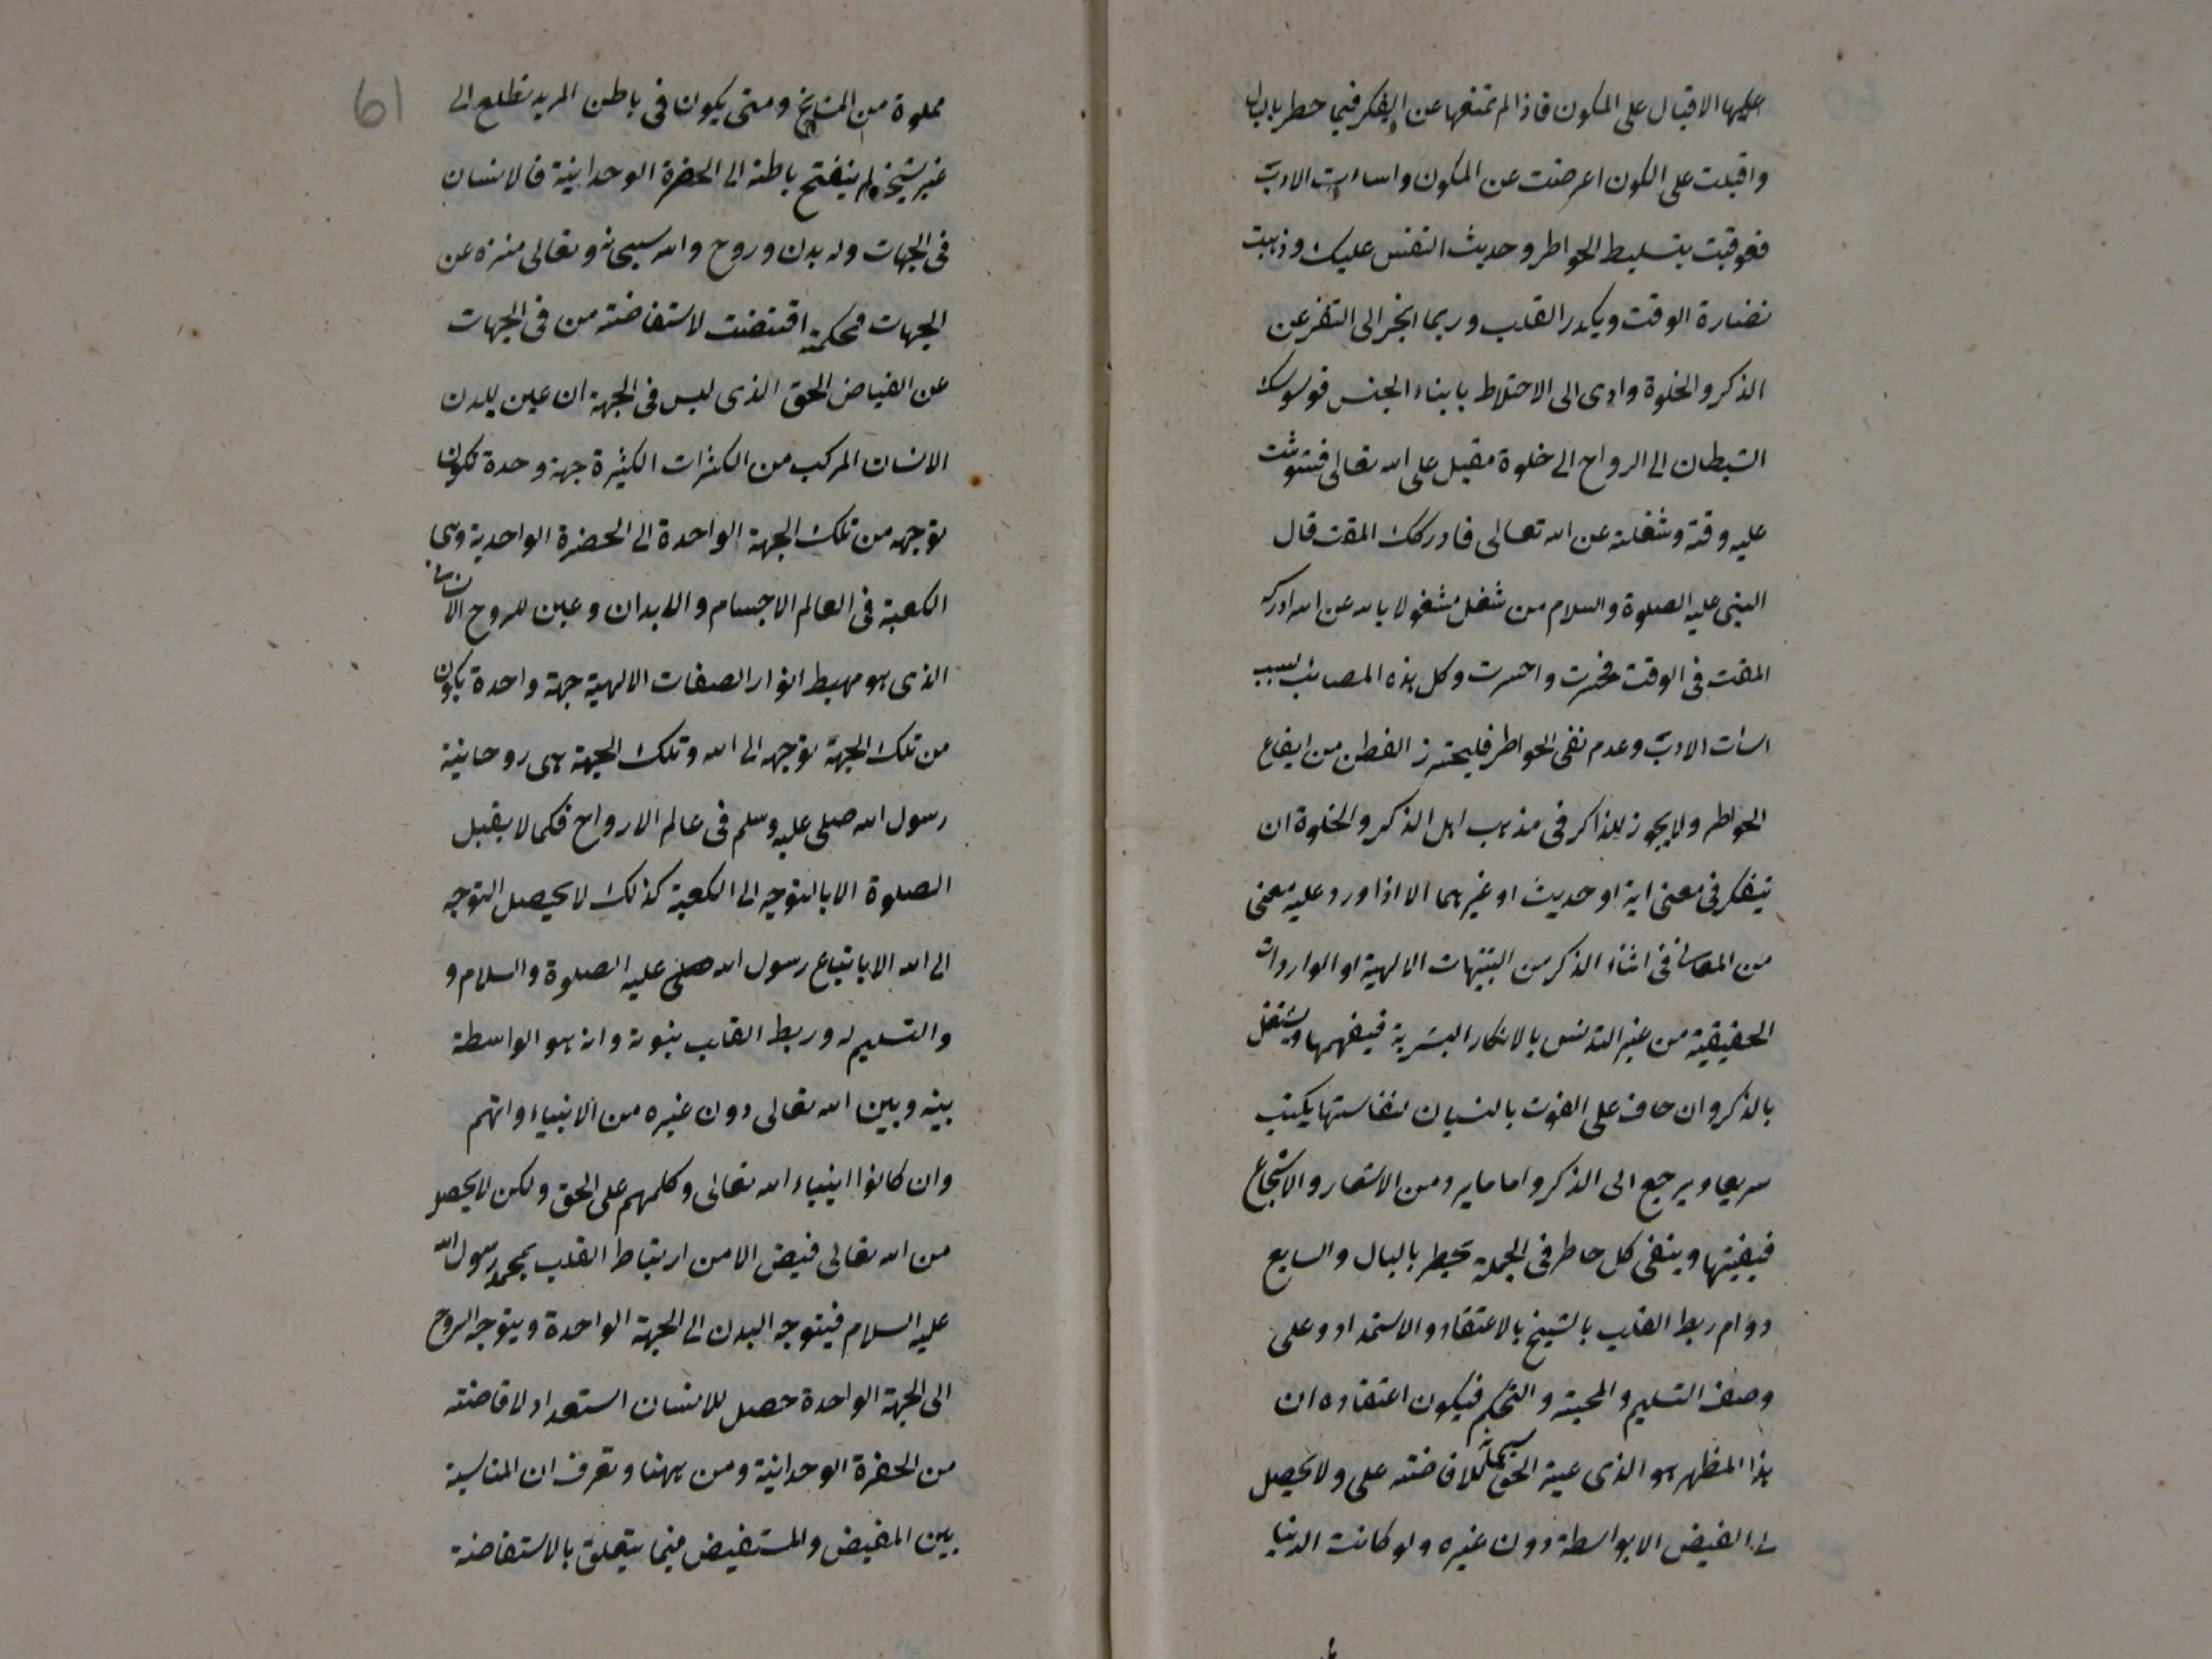 عليها الاقبال على المكون فاذا لم تمنعها عن الفكر فيما خطر بالبال
واقبلت على الكون اعرضت عن المكون واساءت الادب
فعوقبت بتسليط الخواطر وحديث النفس عليك وذهبت
نضارة الوقت ويكدر القلب وربما انجر الى التفرعن
الذكر والخلوة وادى الى الاختلاط بابناء الجنس فوسوسك
الشيطان الى الرواح الى خلوة مقبل على الله تعالى فشوشت
عليه وقته وشغلته عن الله تعالى فادركك المقت قال
النبى عليه الصلوة والسلام من شغل مشغولا بالله عن الله ادركه
المقت فى الوقت فخسرت واخسرت وكل هذه المصائب بسبب
اسات الادب وعدم نفى الخواطر فليحترز الفطن من ايقاع
الخواطر ولا يجوز للذاكر فى مذهب اهل الذكر والخلوة ان
يتفكر فى معنى اية او حديث او غيرهما الا اذا ورد عليه معنى
من المعانى فى اثناء الذكر من التنبيهات الالهية او الواردات
الحقيقية من غير التدنس بالافكار البشرية فيفهمها ويشتغل
بالذكر وان خاف على الفوت بالنسيان لنفاستها يكتب
سريعا ويرجع الى الذكر واما ما يرد من الاشعار والاسجاع
فيفنيها وينفى كل خاطر فى الجملة يخطر بالبال والسابع
دوام ربط القلب بالشيخ بالاعتقاد والاستمداد وعلى
وصف التسليم والمحبة والتحكيم فيكون اعتقاده ان
هذا المظهر هو الذى عينه الحق سبحانه للافاضته على ولا يحصل
لى الفيض الا بواسطة دون غيره ولو كانت الدنيا
61
مملوة من المشايخ ومتى يكون فى باطن المريد تطلع الى
غير شيخه لم ينفتح باطنه الى الحضرة الوحدانية فالانسان
فى الجهات وله بدن وروح والله سبحانه وتعالى منزه عن
الجهات فحكمته اقتضت لاستفاضته من فى الجهات
عن الفياض الحق الذى ليس فى الجهة ان عين للبدن
الانسان المركب من الكثرات الكثيرة جهة وحدة تكون
توجهه من تلك الجهة الواحدة الى الحضرة الواحدية وهى
الكعبة فى العالم الاجسام والابدان وعين للروح الانسانى
الذى هو مهبط انوار الصفات الالهية جهة واحدة يكون
من تلك الجهة توجهه الى الله وتلك الجهة هى روحانية
رسول الله صلى عليه وسلم فى عالم الارواح فكما لا يقبل
الصلوة الا بالتوجه الى الكعبة كذلك لا يحصل التوجه
الى الله الا باتباع رسول الله صلى عليه الصلوة والسلام و
والتسليم له وربط القلب بنبوته وانه هو الواسطة
بينه وبين الله تعالى دون غيره من الانبياء وانهم
وان كانوا انبياء الله تعالى وكلهم على الحق ولكن لا يحصل
من الله تعالى فيض الا من ارتباط القلب بمحمد رسول الله
عليه السلام فيتوجه البدن الى الجهة الواحدة ويتوجه الروح
الى الجهة الواحدة حصل للانسان استعداد لافاضته
من الحضرة الوحدانية ومن ههنا وتعرف ان المناسبة
بين المفيض والمستفيض فيما يتعلق بالاستفاضة